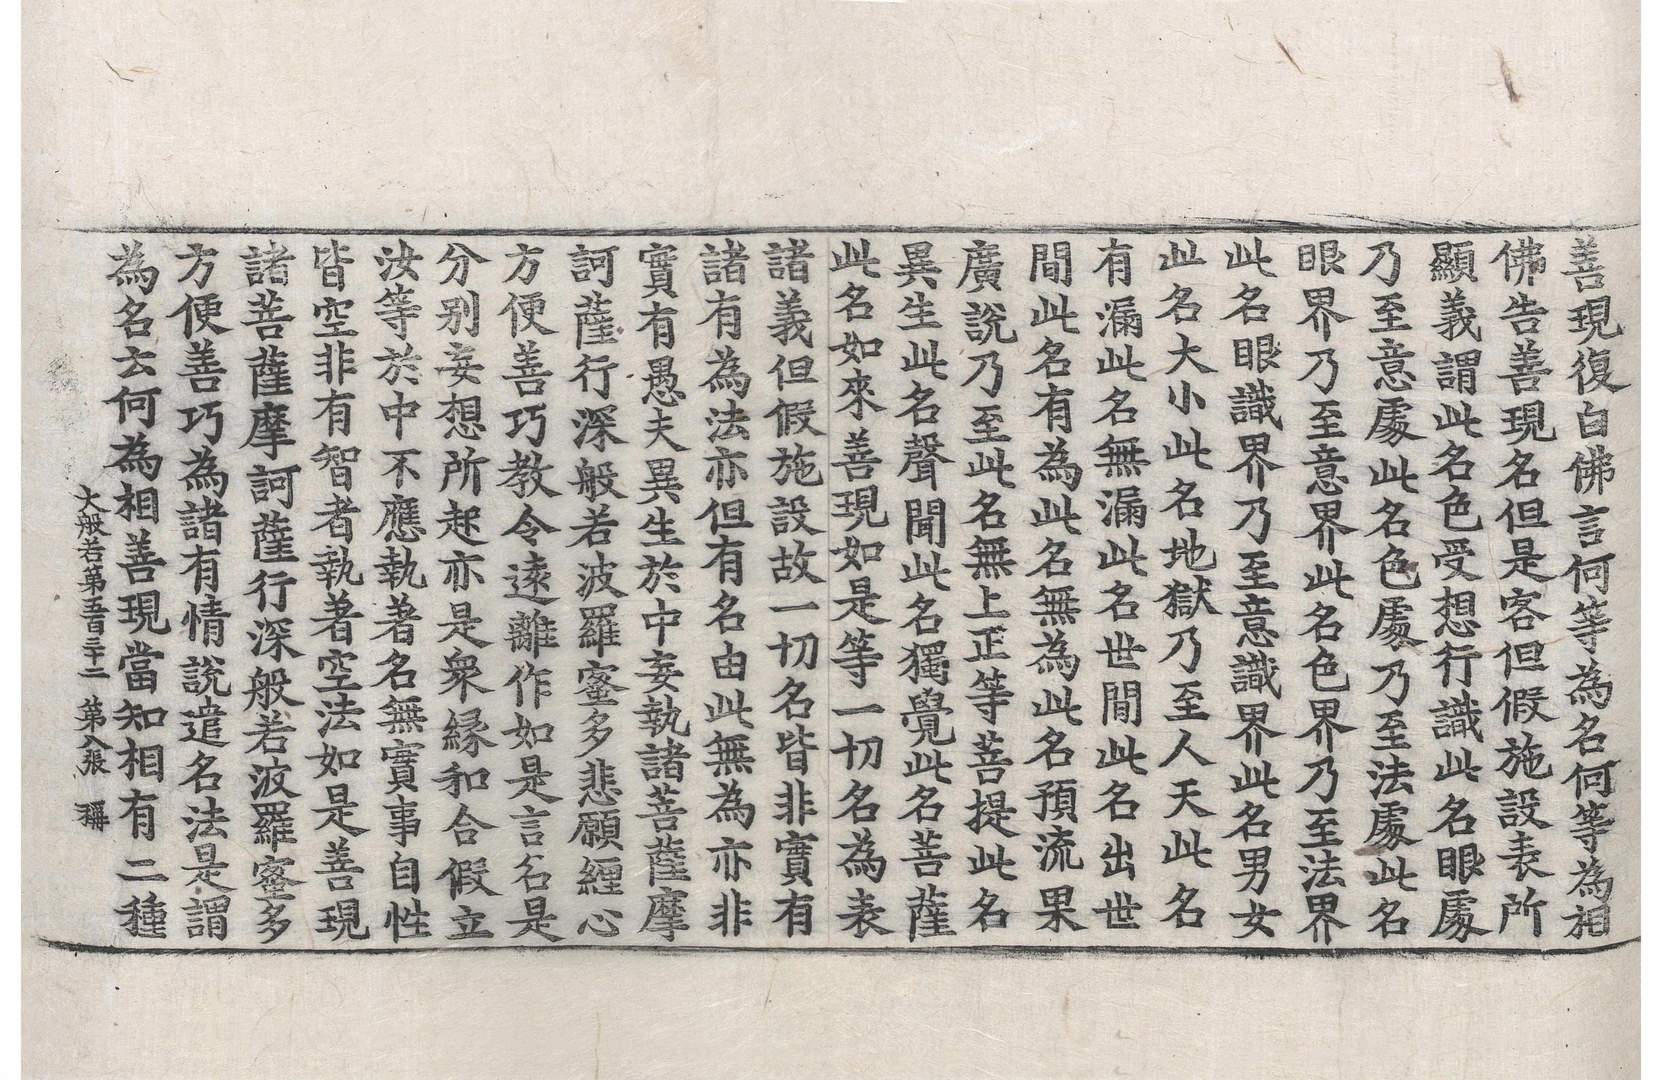 善現復白佛言何等為名何等為相
佛告善現名但是客但假施設表所
顯義謂此名色受想行識此名眼處
乃至意處此名色處乃至法處此名
眼界乃至意界此名色界乃至法界
此名眼識界乃至意識界此名男女
此名大小此名地獄乃至人天此名
有漏此名無漏此名世間此名出世
間此名有為此名無為此名預流果
廣說乃至此名無上正等菩提此名
異生此名聲聞此名獨覺此名菩薩
此名如來善現如是等一切名為表
諸義但假施設故一切名皆非實有
諸有為法亦但有名由此無為亦非
實有愚夫異生於中妄執諸菩薩摩
訶薩行深般若波羅蜜多悲願纏心
方便善巧教令遠離作如是言名是
分別妄想所起亦是衆緣和合假立
汝等於中不應執著名無實事自性
皆空非有智者執著空法如是善現
諸菩薩摩訶薩行深般若波羅蜜多
方便善巧為諸有情說遣名法是謂
為名云何為相善現當知相有二種
大般若第五百三十二 第八張 稱